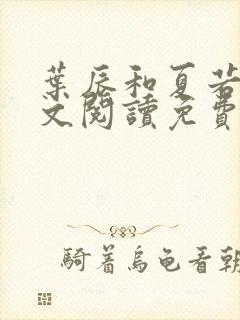 葉辰和夏若
文閱讀免費
騎着烏龜看朝